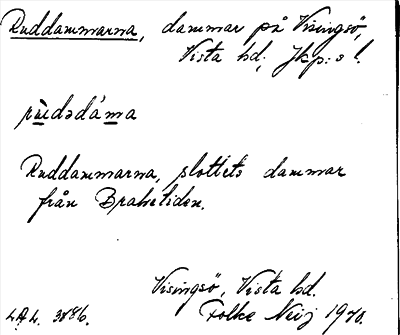 Ruddammarna, dammar på Visingsö,
Vista hd, Jkp:s l.
Ruddammarna, slottets dammar
från Brahetiden.
Visingsö, Vista hd.
Folke Neij 1970.